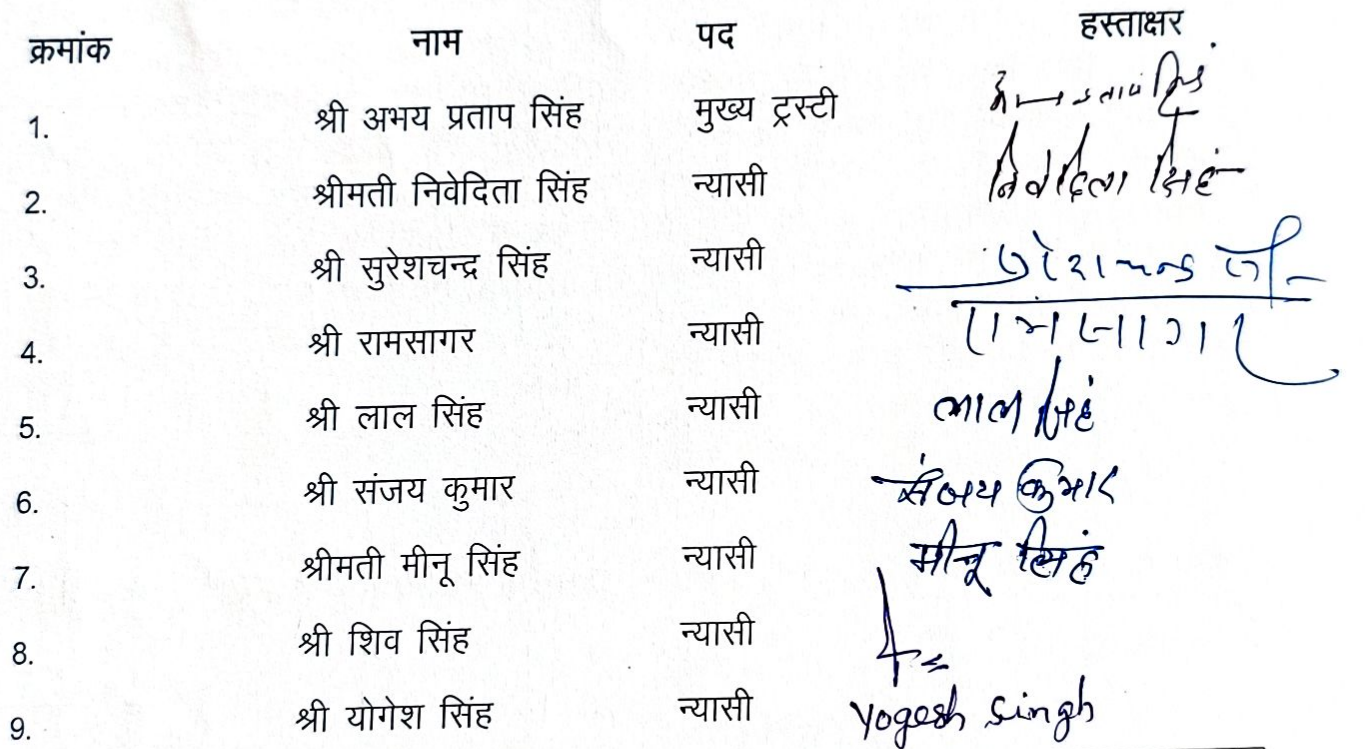 क्रमांक नाम पद हस्ताक्षर
1. श्री अभय प्रताप सिंह मुख्य ट्रस्टी
2. श्रीमती निवेदिता सिंह न्यासी निवेदिता सिंह
3. श्री सुरेशचन्द्र सिंह न्यासी
4. श्री रामसागर न्यासी रामसागर
5. श्री लाल सिंह न्यासी लाल सिंह
6. श्री संजय कुमार न्यासी संजय कुमार
7. श्रीमती मीनू सिंह न्यासी मीनू सिंह
8. श्री शिव सिंह न्यासी
9. श्री योगेश सिंह न्यासी Yogesh Singh